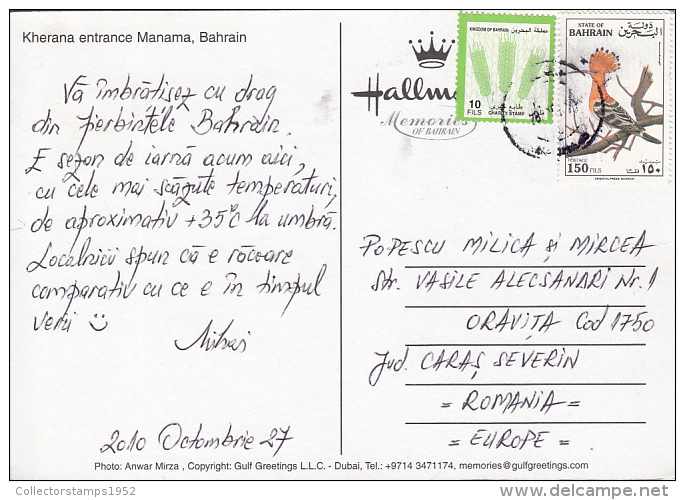 Kherana entrance Manama, Bahrain
Vă îmbrățișez cu drag
din fierbintele Bahrain.
E sezon de iarnă acum aici,
cu cele mai scăzute temperaturi,
de aproximativ +35°C la umbră.
Localnicii spun că e răcoare
comparativ cu ce e în timpul
verii
Mihai
2010 Octombrie 27
Hallm
Memories
OF BAHRAIN
KINGDOM OF BAHRAIN مملكة البحرين
10
FILS
طابع خيري
CHARITY STAMP
STATE OF
BAHRAIN
دولة
البحرين
POSTAGE
150 FILS
١٥٠
POPESCU MILICA și MIRCEA
Str. VASILE ALECSANDRI Nr. 1
ORAVIȚA Cod 1750
Jud. CARAȘ SEVERIN
= ROMANIA =
= EUROPE =
Photo: Anwar Mirza , Copyright: Gulf Greetings L.L.C. - Dubai, Tel.: +9714 3471174, memories@gulfgreetings.com
Collectorstamps1952
delcampe.net